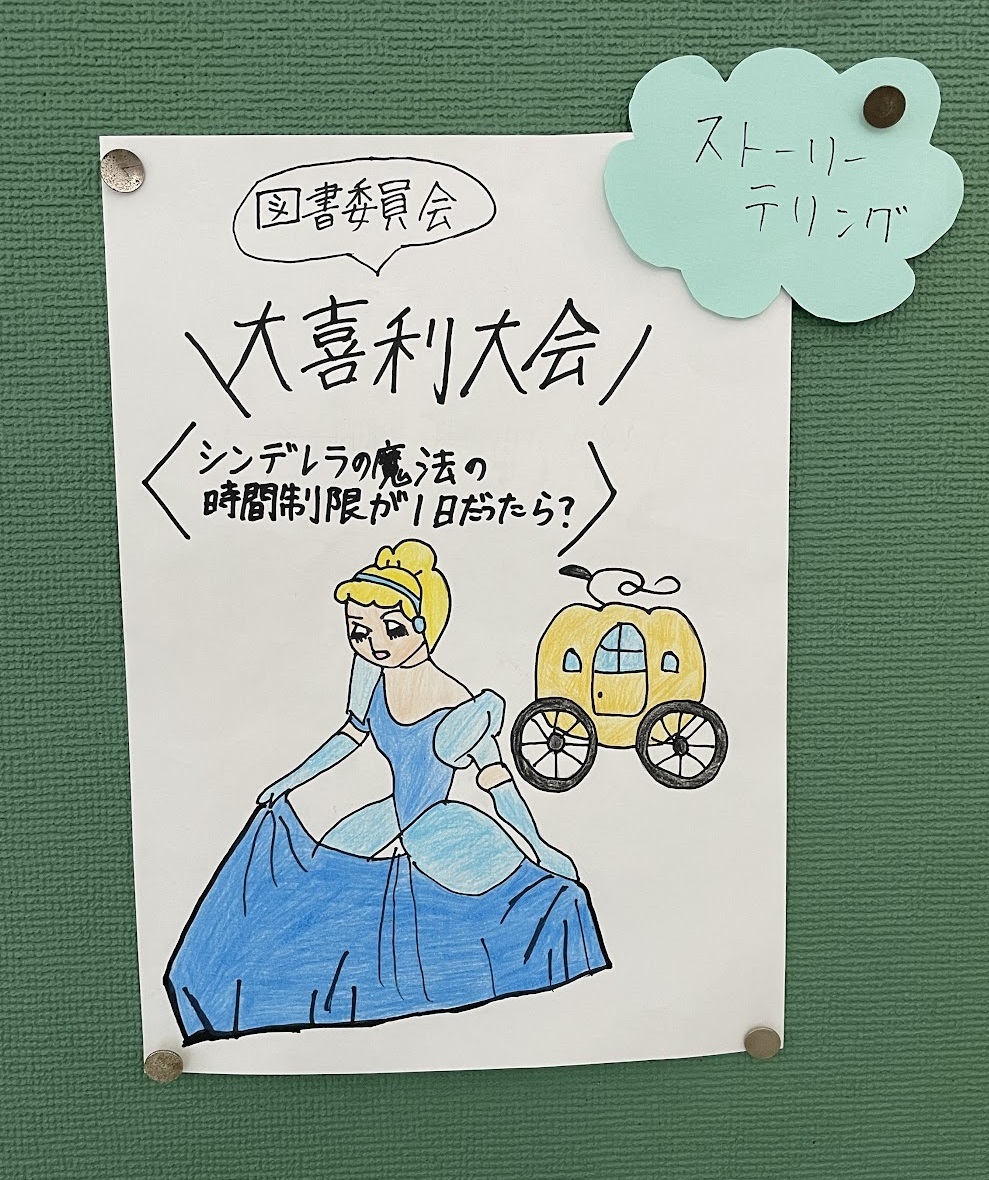 ストーリー
テリング
図書委員会
大喜利大会
シンデレラの魔法の
時間制限が1日だったら?